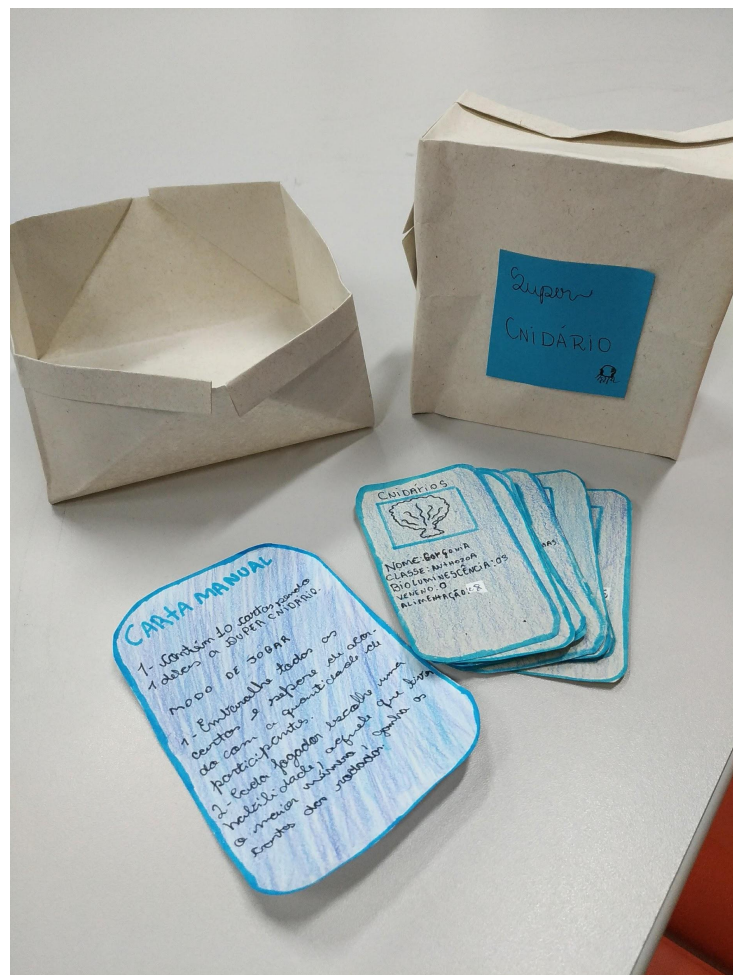 Super
CNIDÁRIO
CNIDÁRIOS
NOME: GORGONIA
CLASSE: ANTHOZOA
BIOLUMINESCÊNCIA: 05
VENENO: 0
ALIMENTAÇÃO: 8
CARTA MANUAL
1- Contém 10 cartas sendo
1 delas a SUPER CNIDÁRIO.
MODO DE JOGAR
1- Embaralhe todas as
cartas e separe de acor-
do com a quantidade de
participantes.
2- Cada jogador escolhe uma
habilidade, aquele que tiver
o maior número, ganha as
cartas das rodadas.